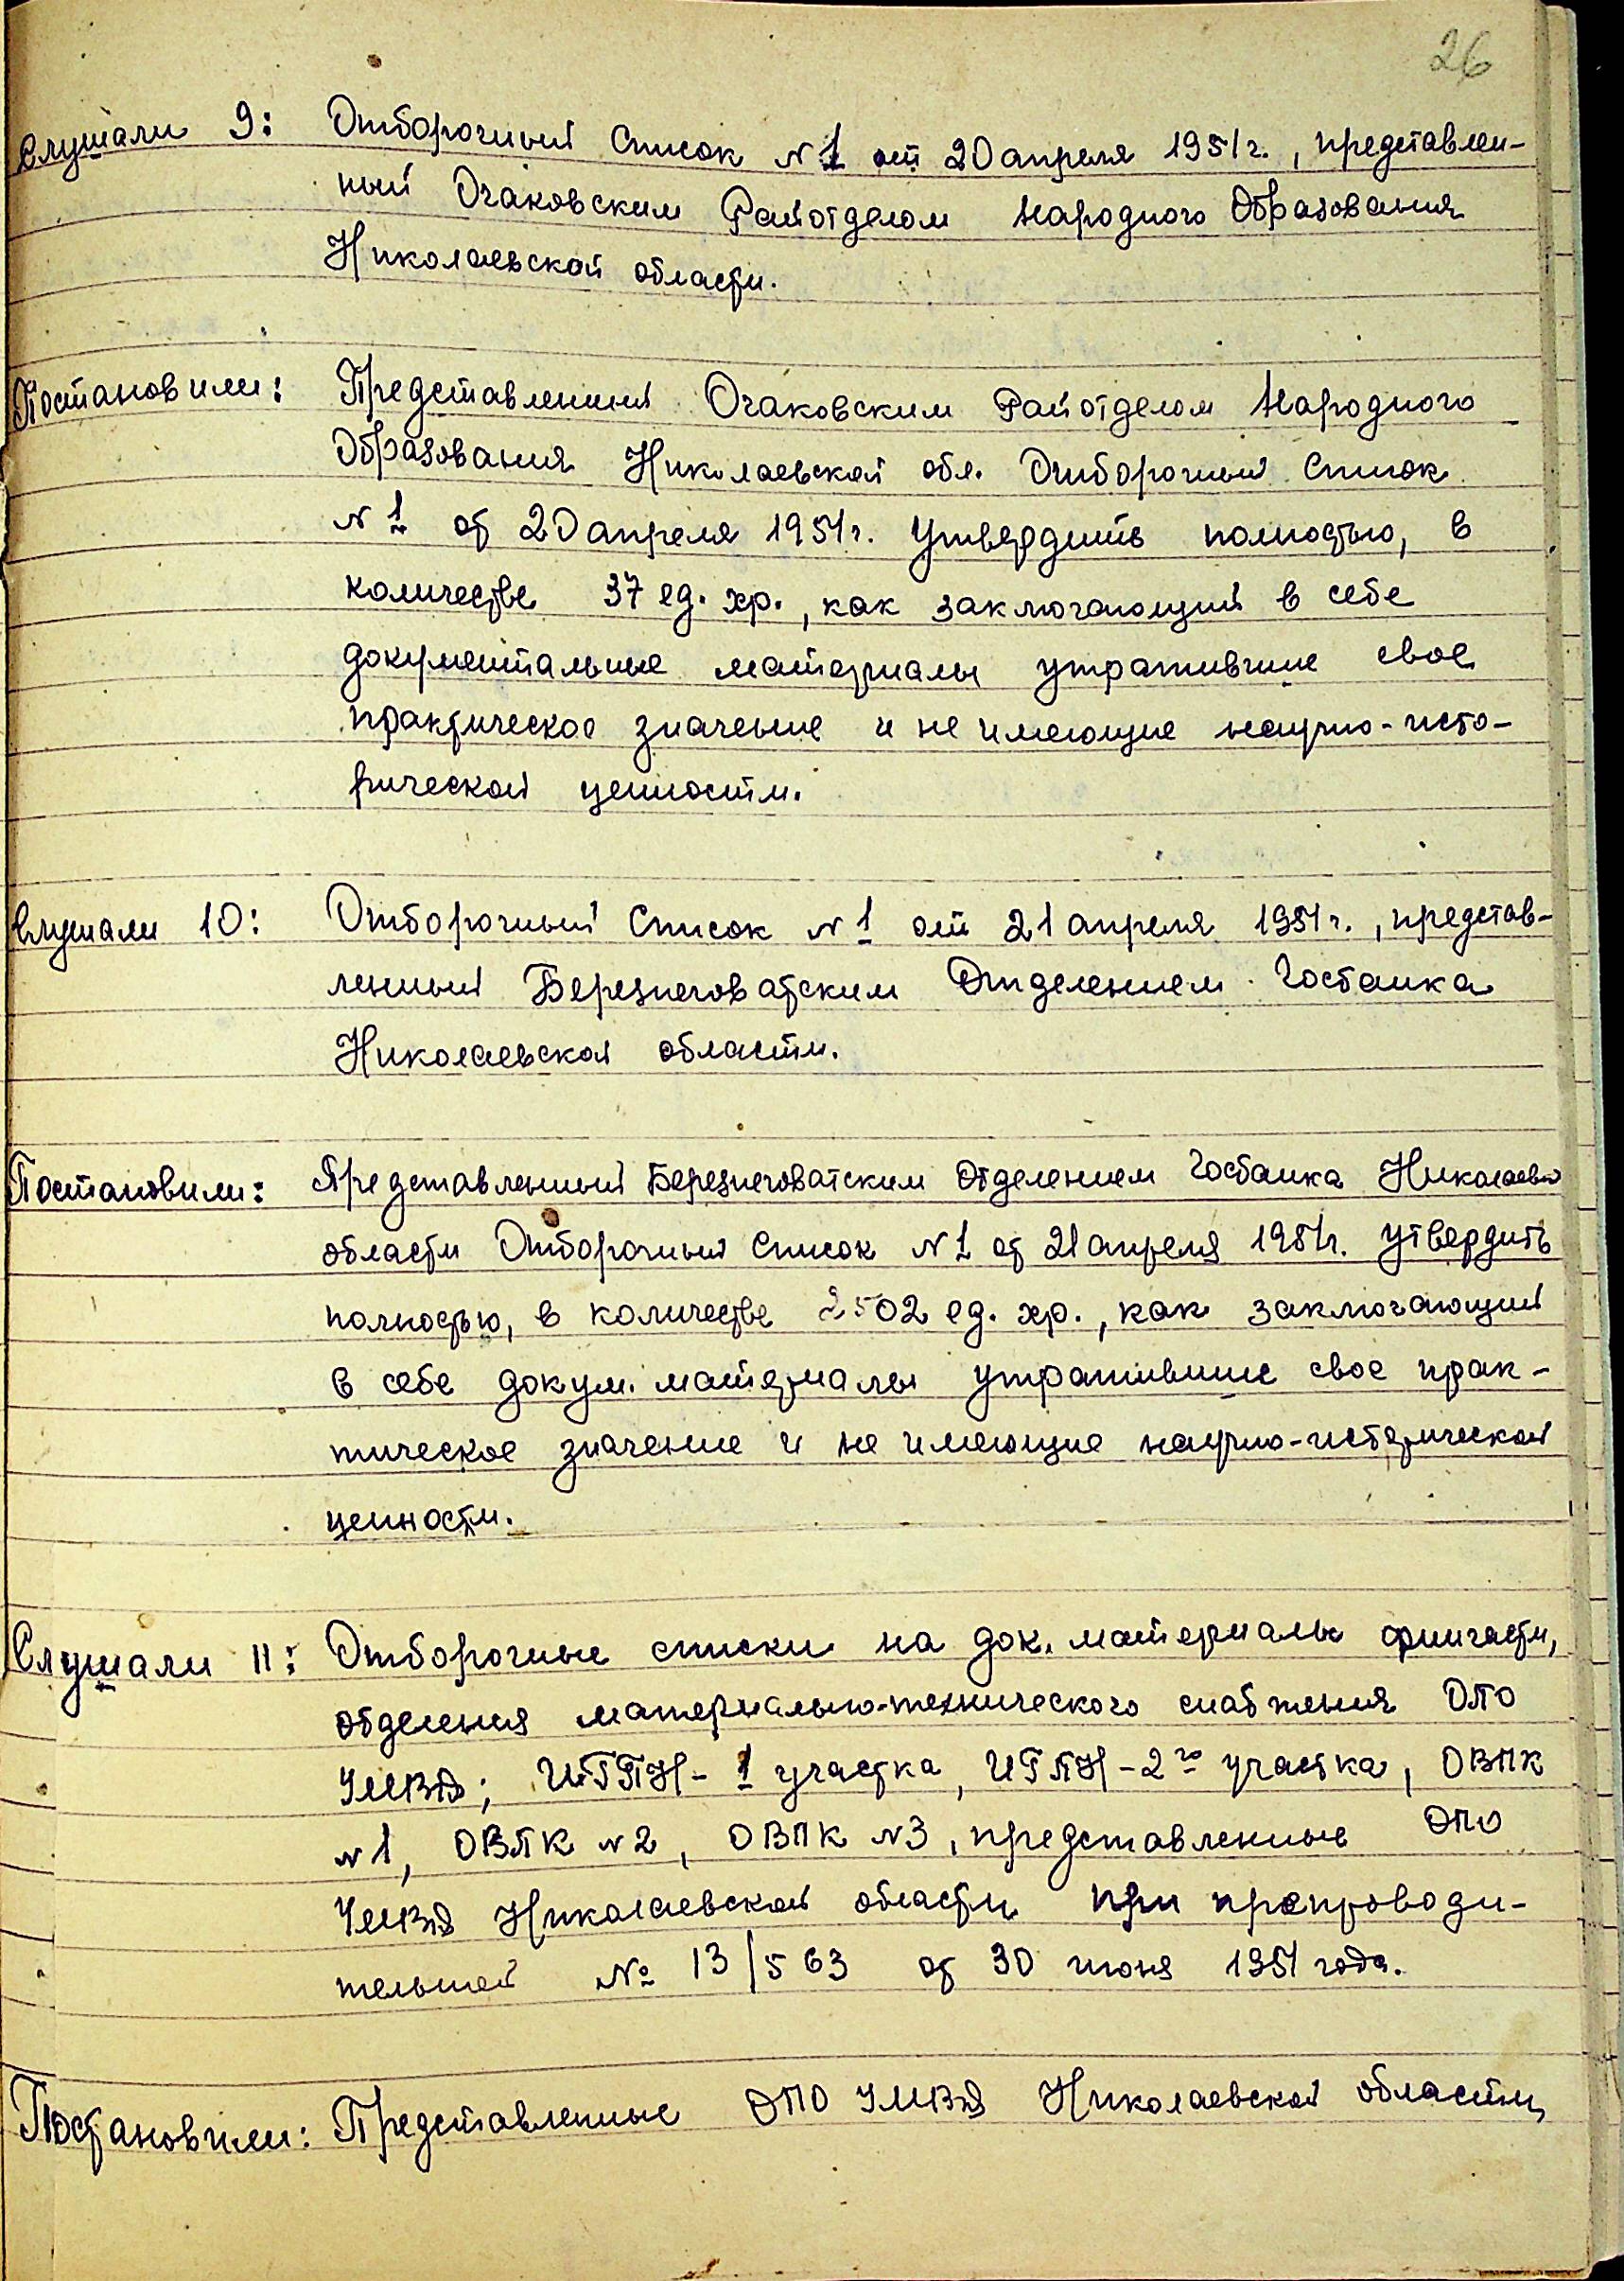 26
Слушали 9: Отборочный Список N 1 от 20 апреля 1951г., представлен-
ный Очаковским Райотделом Народного Образования
Николаевской области.
Постановили: Представленный Очаковским Райотделом Народного
Образования Николаевской обл. Отборочный Список
N 1 от 20 апреля 1951г. Утвердить полностью, в
количестве 37 ед. хр., как заключающий в себе
документальные материалы утратившие свое
практическое значение и не имеющие научно-исто-
рической ценности.
Слушали 10: Отборочный Список N 1 от 21 апреля 1951г., представ-
ленный Березнеговатским Отделением Госбанка
Николаевской области.
Постановили: Представленный Березнеговатским Отделением Госбанка Николаевск
области Отборочный Список N 1 от 21 апреля 1951г. Утвердить
полностью, в количестве 2502 ед. хр., как заключающий
в себе докум. материалы утратившие свое прак-
тическое значение и не имеющие научно-исторической
ценности.
Слушали 11: Отборочные списки на док. материалы финчасти,
отделения материально-технического снабжения ОПО
УМВД; ИГПН - 1 участка, ИГПН - 2го участка, ОВПК
N 1, ОВПК N 2, ОВПК N 3, представленные ОПО
УМВД Николаевской области при препроводи-
тельной № 13/563 от 30 июня 1951 года.
Постановили: Представленные ОПО УМВД Николаевской области,